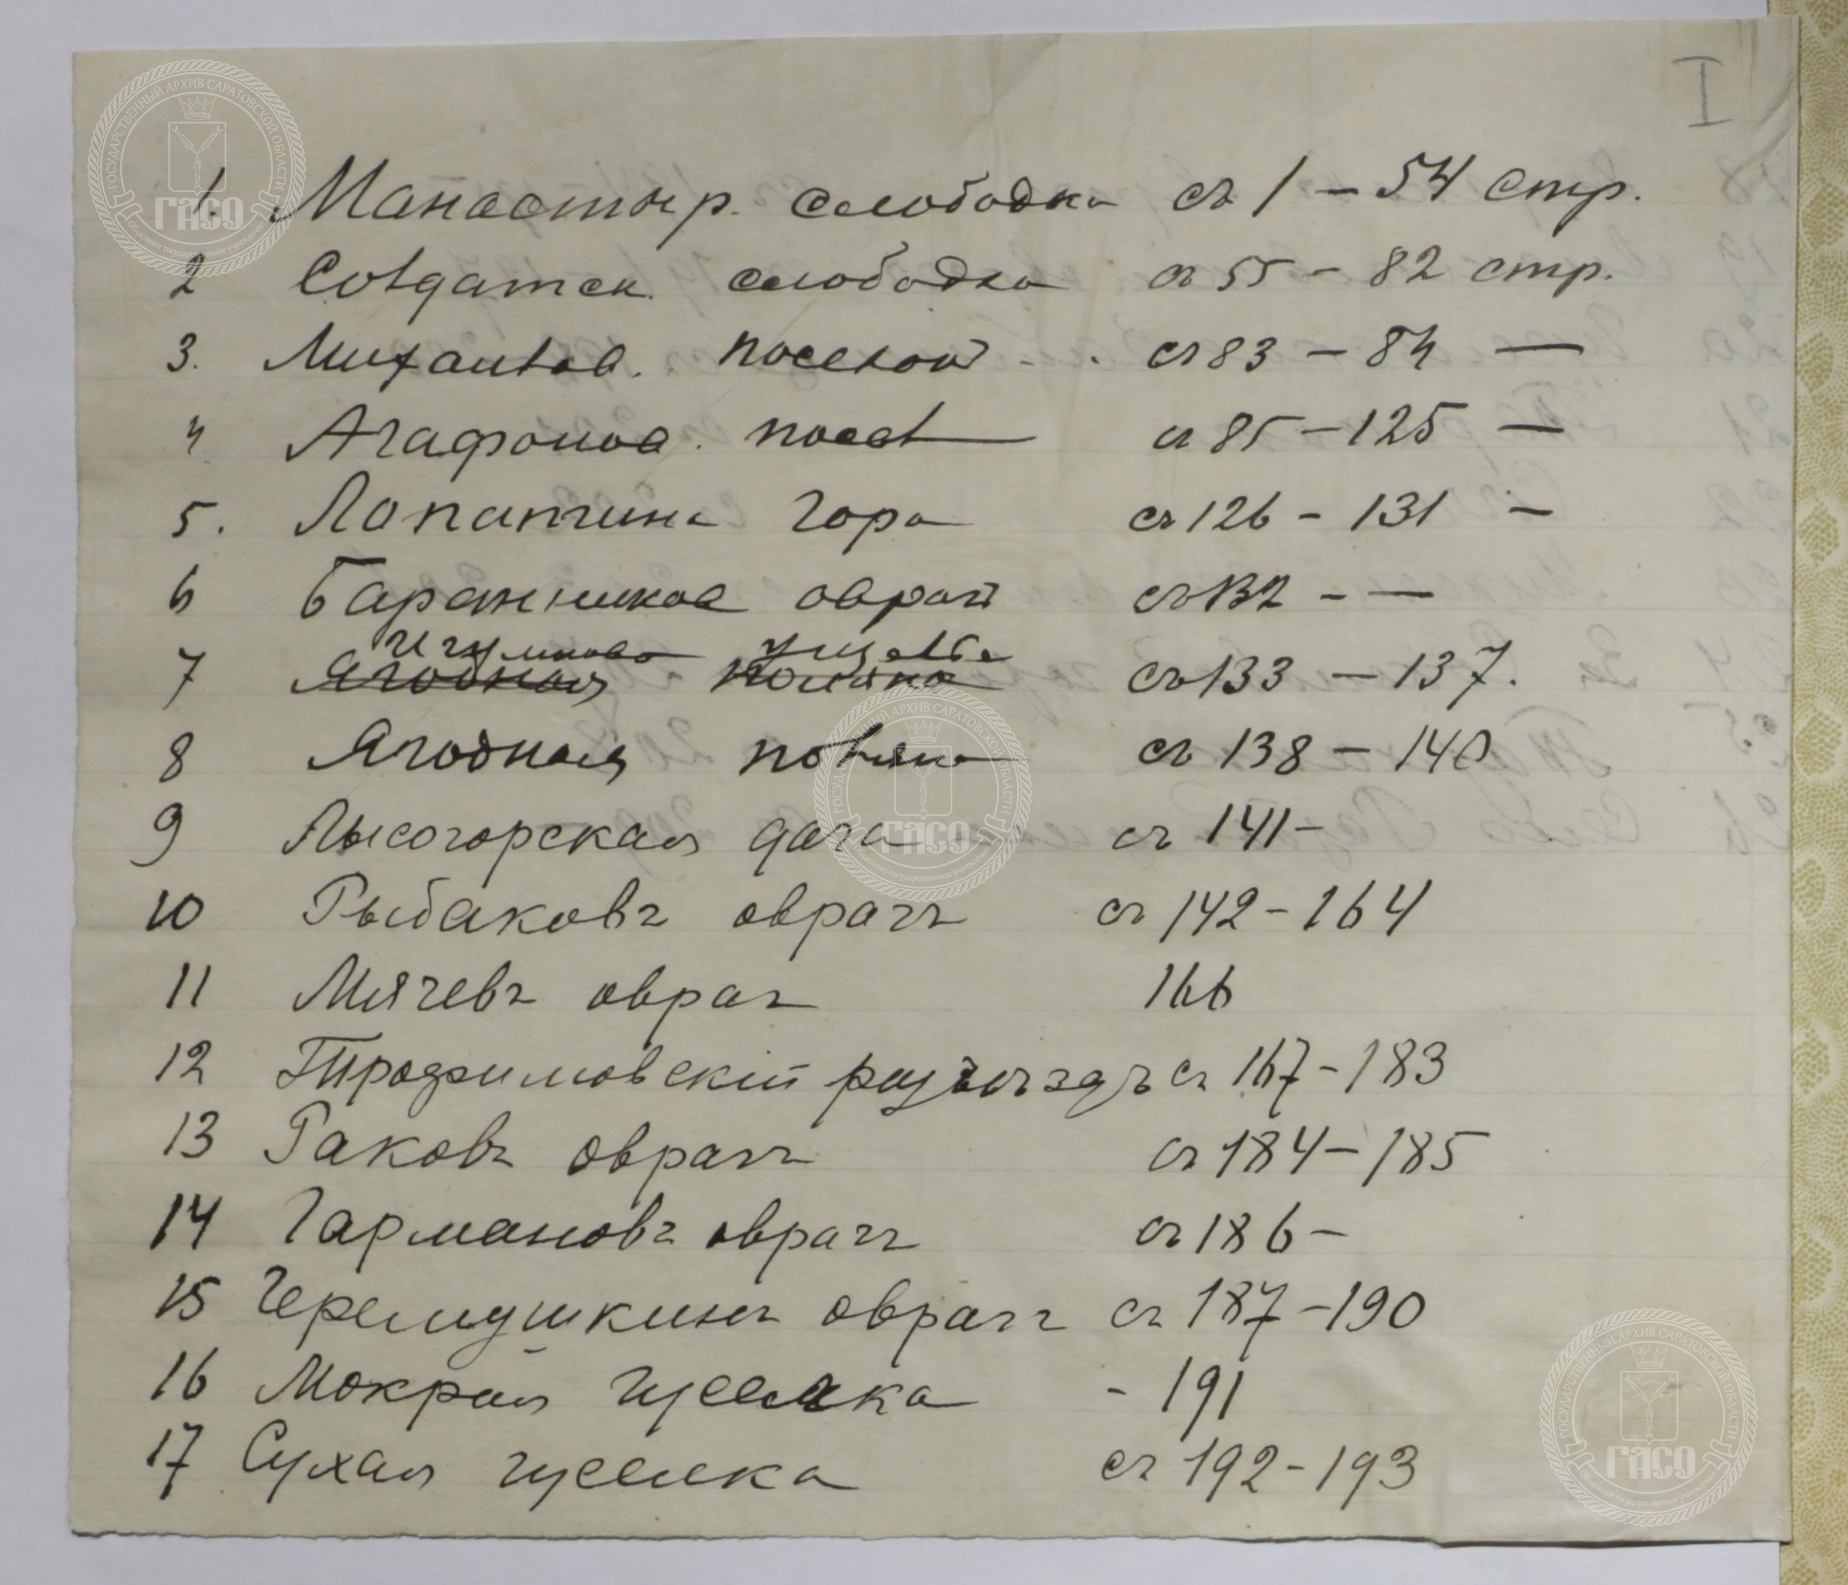 I
1. Манастыр. слободка съ 1 – 54 стр.
2 Солдатск. слободка съ 55 – 82 стр.
3. Михайлов. поселок - . съ 83 – 84 —
4 Агафонов. посел съ 85 – 125 —
5. Лопатина гора съ 126 – 131 –
6 Баранников овраг съ 132 – —
Игумново ущелье
7 Ягодная поляна съ 133 – 137.
8 Ягодная поляна съ 138 – 140
9 Лысогорская дача съ 141 –
10 Рыбаковъ оврагъ съ 142 – 164
11 Мячевъ овраг 166
12 Трофимовскій разъѣздъ съ 167 – 183
13 Раковъ оврагъ съ 184 – 185
14 Гармановъ оврагъ съ 186 –
15 Черемушкинъ оврагъ съ 187 – 190
16 Мокрая гуселка - 191
17 Сухая гуселка съ 192 – 193
ГОСУДАРСТВЕННЫЙ АРХИВ САРАТОВСКОЙ ОБЛАСТИ
ГАСО
ГОСУДАРСТВЕННЫЙ АРХИВ САРАТОВСКОЙ ОБЛАСТИ
ГАСО
ГОСУДАРСТВЕННЫЙ АРХИВ САРАТОВСКОЙ ОБЛАСТИ
ГАСО